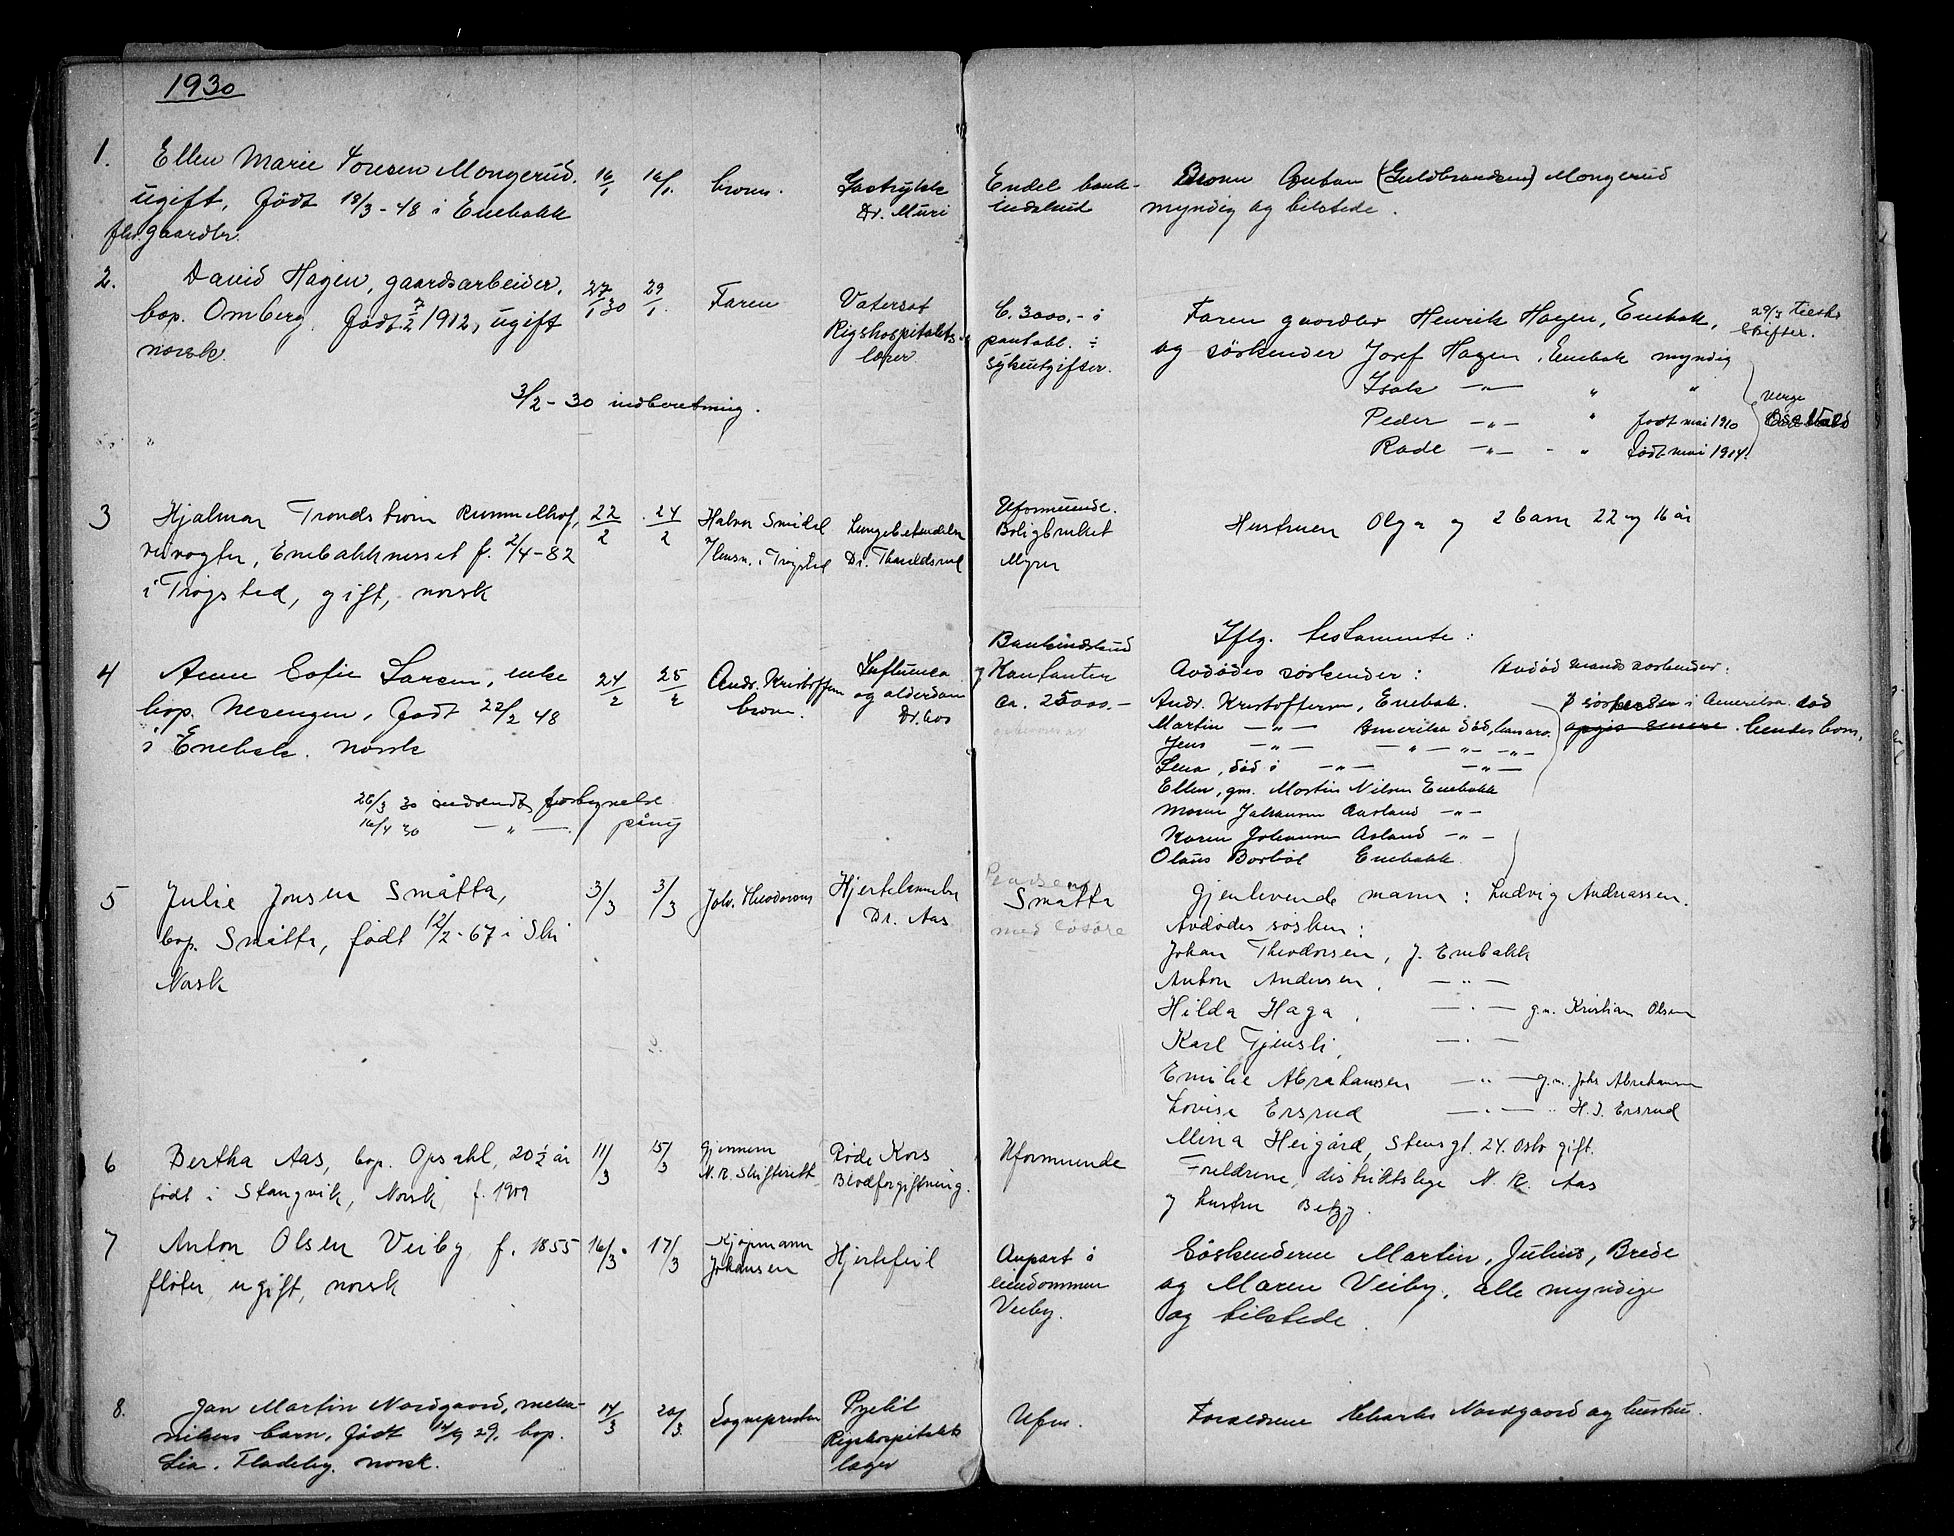 1930
1. Ellen Marie Toresen Mongerud. 16/1 16/1. brorn. Dr. Muri Endel bank- Broren Anton (Guldbrandsen) Mongerud
ugift, født 18/3-48 i Enebakk indskud myndig og tilstede.
fhv. gaardbr.
2. David Hagen, gaardsarbeider, 27/1 30 29/1. Faren Vatersot C. 3000,- i Faren gaardbr Henrik Hagen, Enebak,
bop. Omberg. født 7/2 1912, ugift Rigshospitalets pantobl. ÷ og søskender Josef Hagen, Enebak myndig
norsk. læger. sykeutgifter. Isak —„— „ „
3/2-30 indberetning. Peder —„— „ født mai 1910 verge
Rode —„— - „ født mai 1914.
3 Hjalmar Trondstrøm 22/2 24/2 Halvor Smidel Lungebetendelse Uformuende. Hustruen Olga og 2 barn 22 og 16 år
veivogter, Enebakknesset f. 2/4-82 i Trøgstad Dr. Boligbruket
i Trøgstad, gift, norsk Myrer
Iflg. testamente:
4 Anne Sofie Larsen, enke 24/2 25/2 Andr. Kristoffersen Influensa Bankindskud
bop. Nesengen, født 22/2 48 brorn. og alderdom og Kontanter Avdødes søskender: Avdød mands søskender:
i Enebak. norsk Dr. Aas ca. 25000.- Andr. Kristoffersen, Enebak. i Amerika død
Martin —„— Amerika død, hans arv. hendes barn.
Jens —„— —„— —„— —„—
Lena, død i —„— —„—
Ellen, gm. Martin Nilsen Enebakk
26/3 30 indsendt forkynnelse Johansen Aasland —„—
16/4 30 —„— påny Karen Johansen Asland —„—
Olaus Borbøl Enebakk.
5 Julie Jonsen Småtta, 3/3 3/3 Joh. Theodorsens Hjertelammelse Småtta Gjenlevende mann: Ludvig Andreassen.
bop. Småtta, født 12/2-67 i Ski Dr. Aas med løsøre Avdødes søsken:
Norsk Johan Theodorsen, y. Enebakk
Anton Andersen, —„—
Hilda Haga, —„— g.m. Kristian Olsen
Karl Tjensli, —„—
Emilie Abrahamsen —„— g.m. Johs Abrahamsen
Lovise Ersrud —„— „ H. J. Ersrud
Mina Heigård, Stensgt. 24. Oslo gift.
6 Bertha Aas, bop. Opsahl, 20 1/2 år 11/3 15/3 Gjennem Røde Kors Uformuende Foreldrene, distriktslege N. R. Aas
født i Stangvik, Norsk, f. 1909 N. R. Skifterett Blodforgiftning. og hustru Betzy.
7 Anton Olsen Veiby f. 1855 16/3. 17/3 Kjøpmann Hjertefeil Anpart i Søskenderne Martin, Julius, Brede
fløter, ugift, norsk Johansen eiendommen og Maren Veiby, alle myndige
Veiby. og tilstede.
8. Jan Martin Nordgaard, 17/3 20/3. Sogneprest Pyelit Ufm. Forældrene Nordgaard og hustru.
barn, født 14/9 29, bop. Rigshospitalets
Lia. Fladeby. norsk. læger